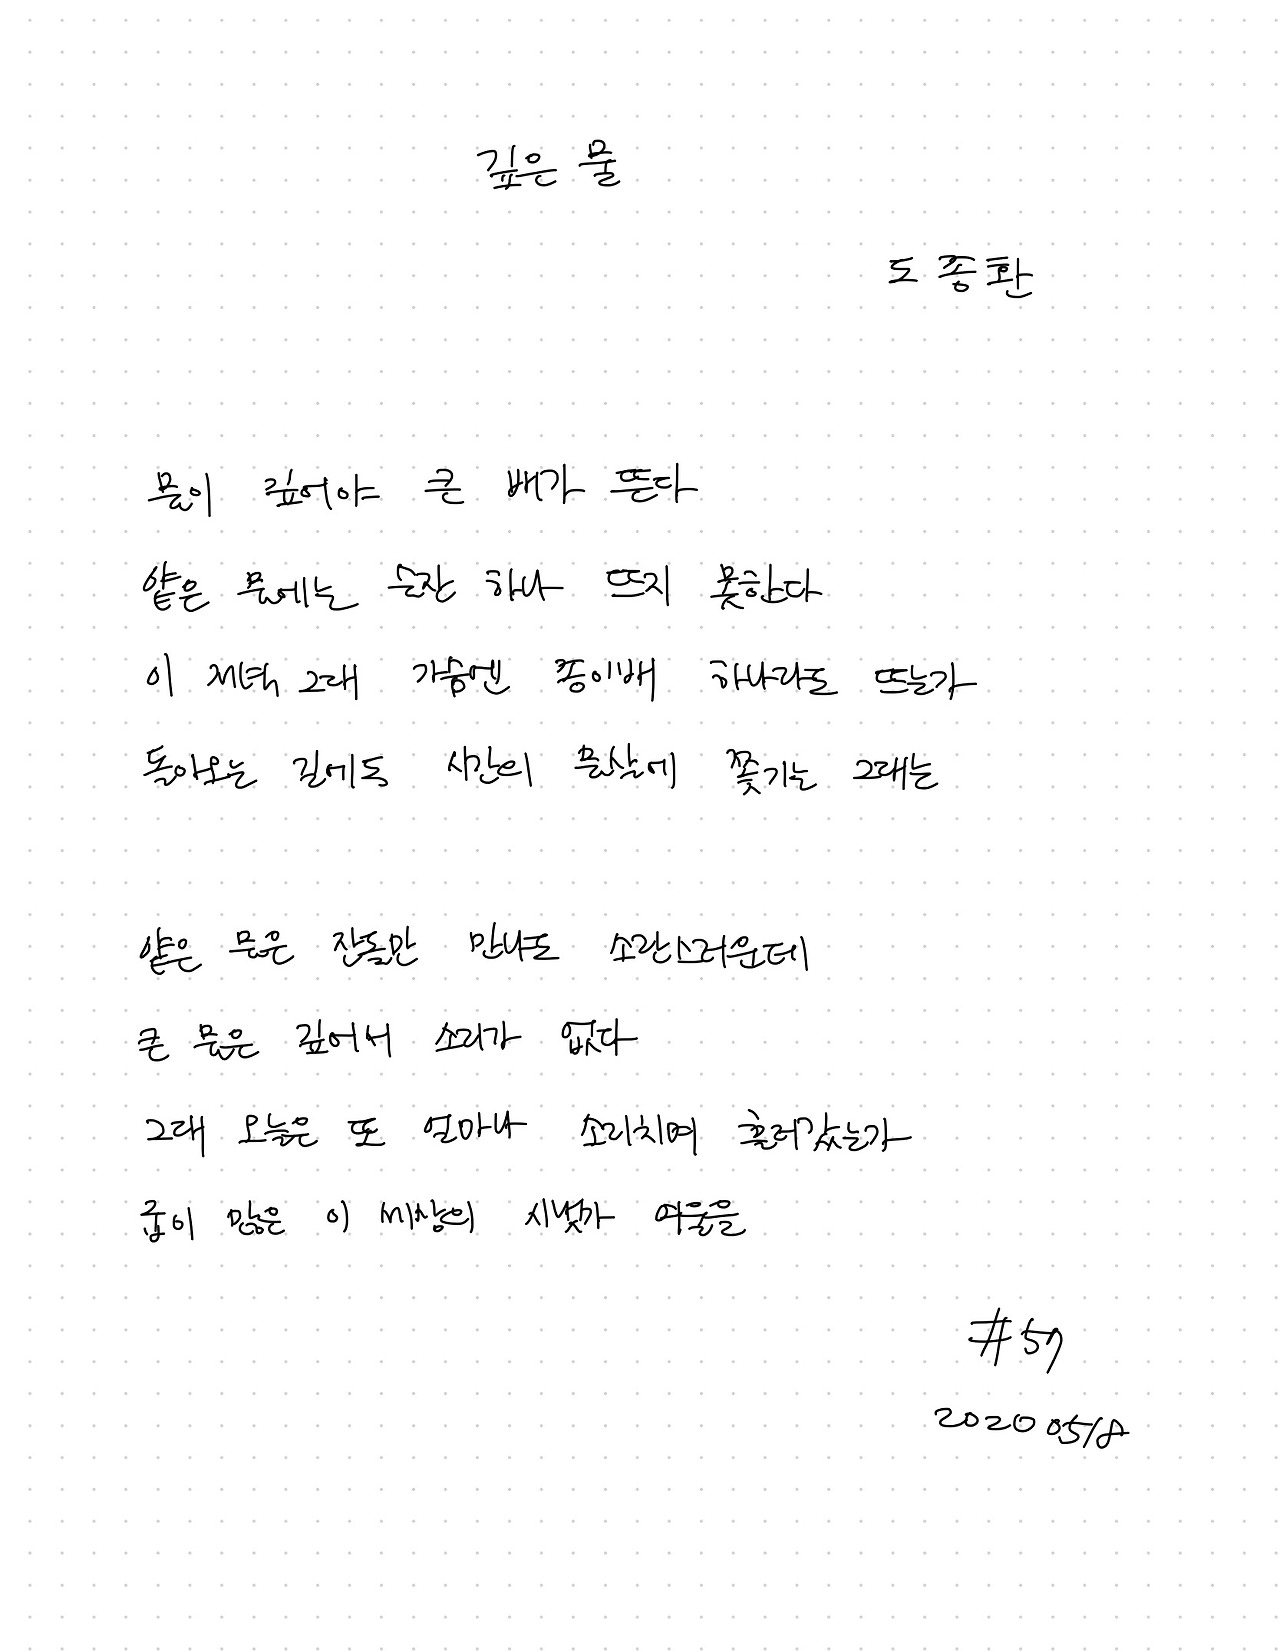 깊은 물
도종환
물이 깊어야 큰 배가 뜬다
얕은 물에는 술잔 하나 뜨지 못한다
이 저녁 그대 가슴엔 종이배 하나라도 뜨는가
돌아오는 길에도 시간의 물살에 쫓기는 그대는
얕은 물은 잔돌만 만나도 소란스러운데
큰 물은 깊어서 소리가 없다
그대 오늘은 또 얼마나 소리치며 흘러갔는가
굽이 많은 이 세상의 시냇가 여울을
#57
2020 05/8